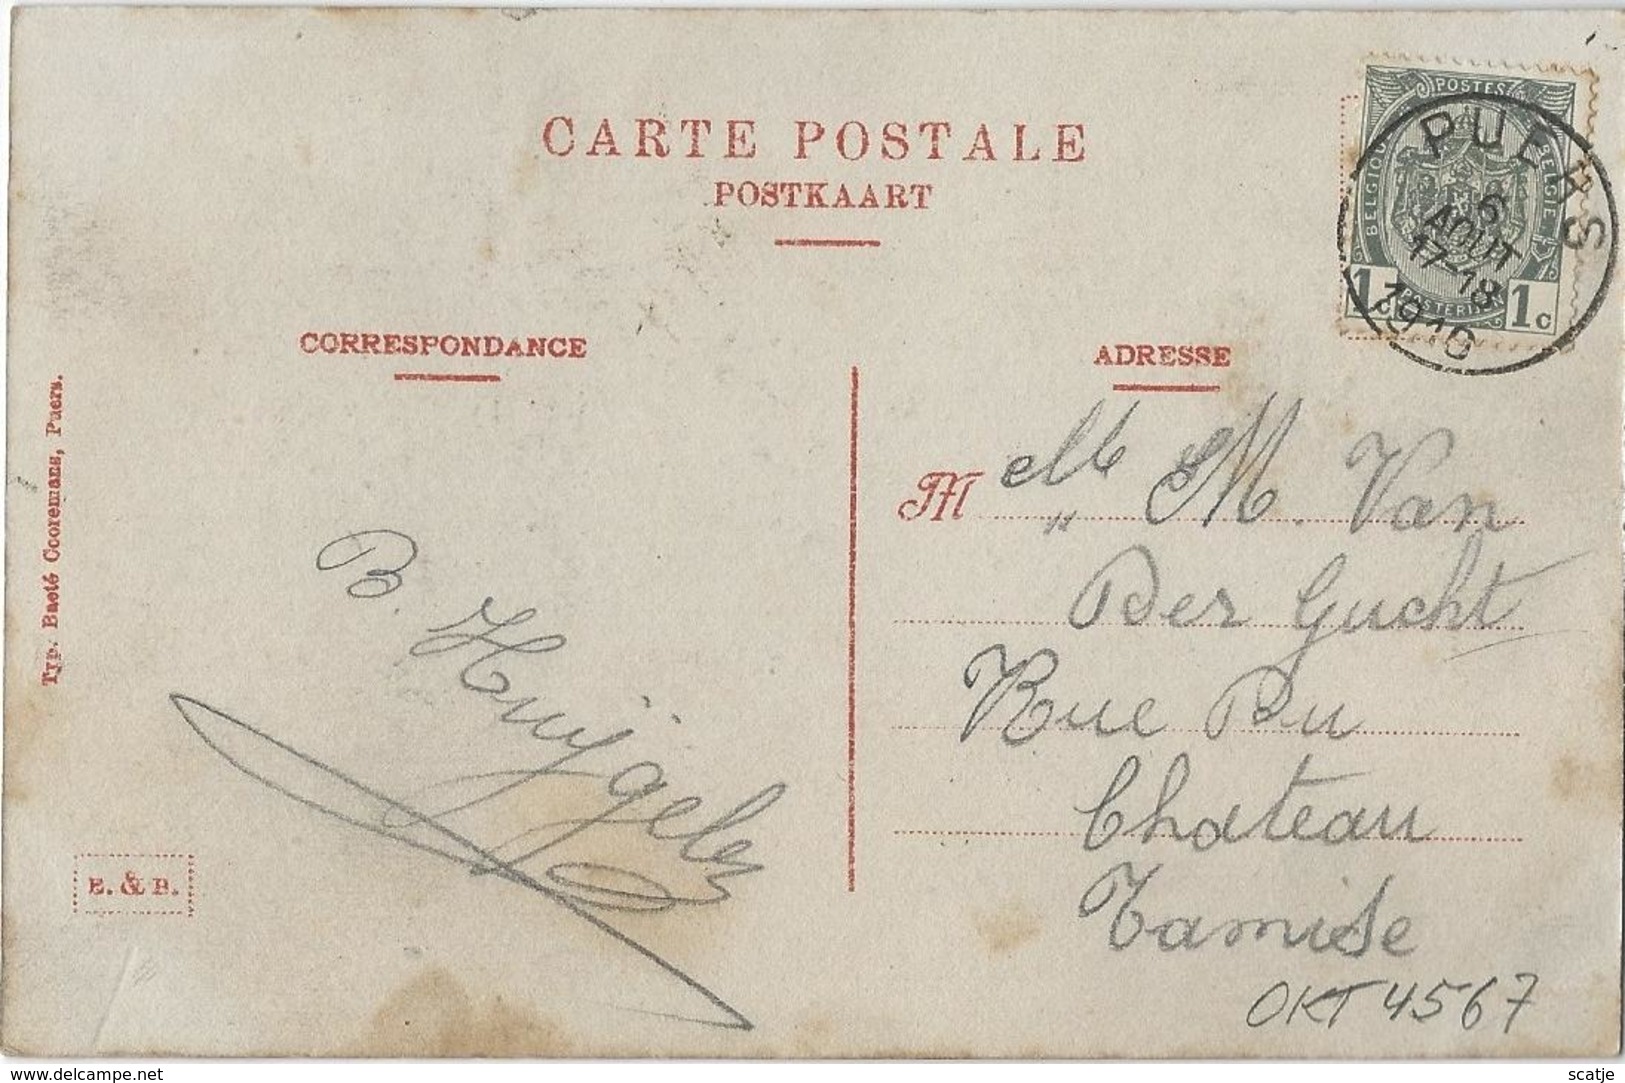 CARTE POSTALE
POSTKAART
POSTES
BELGIQUE
BELGIE
POSTERIJEN
1c 1c
PUERS
6
AOUT
17-18
1910
CORRESPONDANCE
ADRESSE
Typ. Baeté Cooremans, Puers.
B. Huÿgelen
E. & B.
M elle
" M. Van
Der Gucht
Rue Du
Chateau
Tamise
OKT 4567
www.delcampe.net
scatje